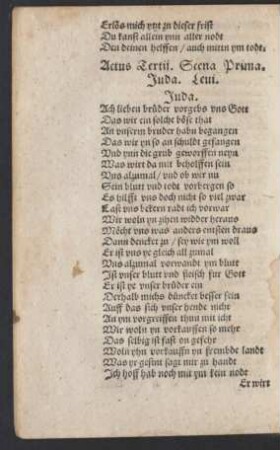 Erlös mich ytzt zu dieser frist
Du kanst allein ynn aller nodt
Den deinen helffen / auch mitin ym todt.
Actus Tertii. Scena Prima.
Juda. Leui.
Juda.
Ach lieben brüder vorgebs vns Gott
Das wir ein solche böse that
An vnserm bruder habn begangen
Das wir yn so an schuldt gefangen
Vnd ynn die grub geworffen neyn
Was wirt da mit beholffen sein
Vns alzumal / vnd ob wir nu
Sein blutt vnd todt vorbergen so
Es hilfft vns doch nicht so viel zwar
Last vns bessern radt ich vorwar
Wir woln yn zihen widder heraus
Möcht vns was anders entstên draus
Dann dencket zu / sey wie ym woll
Er ist vns ye gleich all zumal
Vns alzumal vorwandt ym blutt
Ist vnser blutt vnd fleisch fur Gott
Er ist ye vnser brüder ein
Derhalb michs düncket besser sein
Auff das sich vnser hende nicht
An ym vorgreiffen thun mit icht
Wir woln yn vorkauffen so mehr
Das selbig ist fast on gefehr
Woln yhn vorkauffn yn frembde landt
Was ye gesint sagt mir zu handt
Ich hoff hab noch mit ym kein nodt
Er wirt